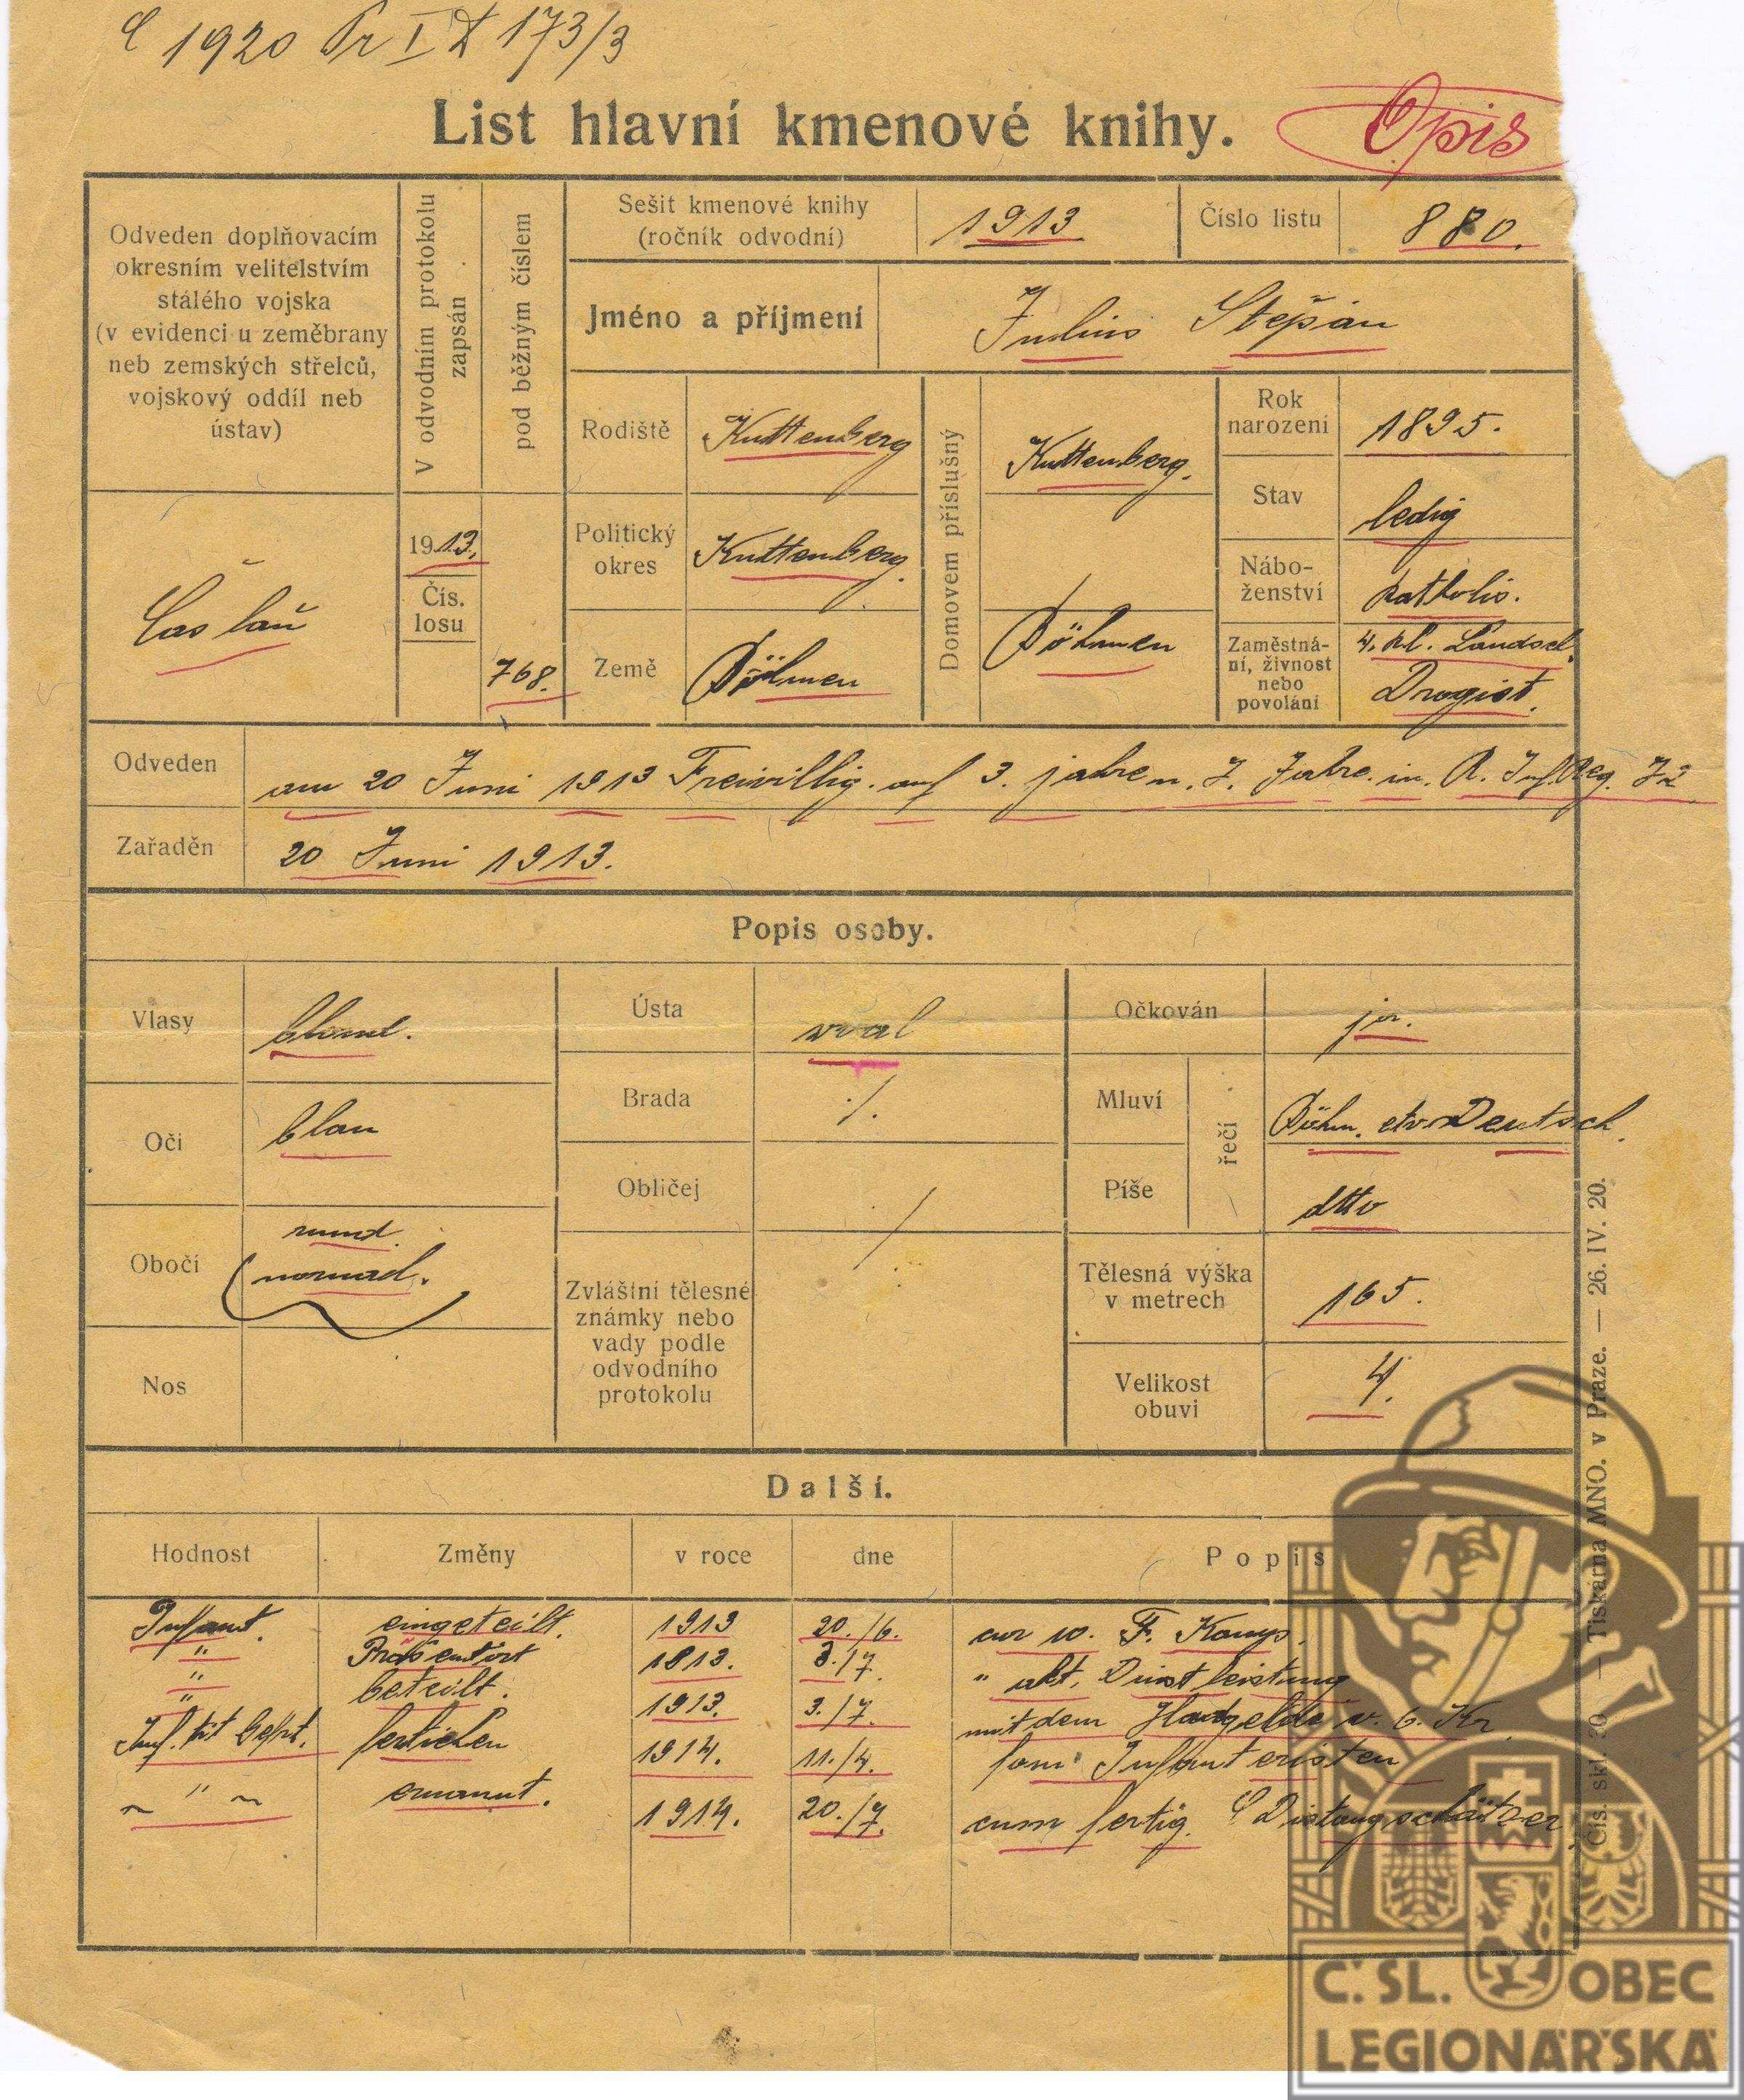 1920 Pr I 173/3
List hlavní kmenové knihy.
Opis
Odveden doplňovacím
okresním velitelstvím
stálého vojska
(v evidenci u zeměbrany
neb zemských střelců,
vojskový oddíl neb
ústav)
V odvodním protokolu
zapsán
pod běžným číslem
Sešit kmenové knihy
(ročník odvodní)
1913
Číslo listu
880.
Jméno a příjmení
Julius Štěpán
Rodiště
Kuttenberg
Domovem příslušný
Kuttenberg.
Rok
narození
1895.
Stav
ledig
Časlau
1913.
Čís.
losu
768.
Politický
okres
Kuttenberg.
Nábo-
ženství
katholis.
Země
Böhmen
Böhmen
Zaměstná-
ní, živnost
nebo
povolání
4. kl. Landsch.
Drogist.
Odveden
am 20 Juni 1913 Freiwillig. auf 3. jahre n. 7. Jahre. in. R. Inf. Reg. 72
Zařaděn
20 Juni 1913.
Popis osoby.
Vlasy
blond.
Ústa
oval
Očkován
ja.
Oči
blau
Brada
·/.
Mluví
řečí
Böhm. etw Deutsch.
Obličej
/
Píše
dtto
Obočí
rund.
normal.
Zvláštní tělesné
známky nebo
vady podle
odvodního
protokolu
Tělesná výška
v metrech
165.
Nos
Velikost
obuvi
4.
Další.
Hodnost
Změny
v roce
dne
Popis
Infant. eingeteilt. 1913 20./6. zur F. Komp.
" Präsentirt 1913. 3./7. " akt. Dienstleistung
" beteilt. 1913. 3./7. mit dem Handgelde v. 6. Kr
Inf. tit Gefrt. 1914. 11./4. Infanteristen
" ernannt. 1914. 20./7. zum fertig. Distanzschätzer
Čís. skl. 20 — Tiskárna MNO. v Praze. — 26. IV. 20.
Č. SL. OBEC
LEGIONÁŘSKÁ